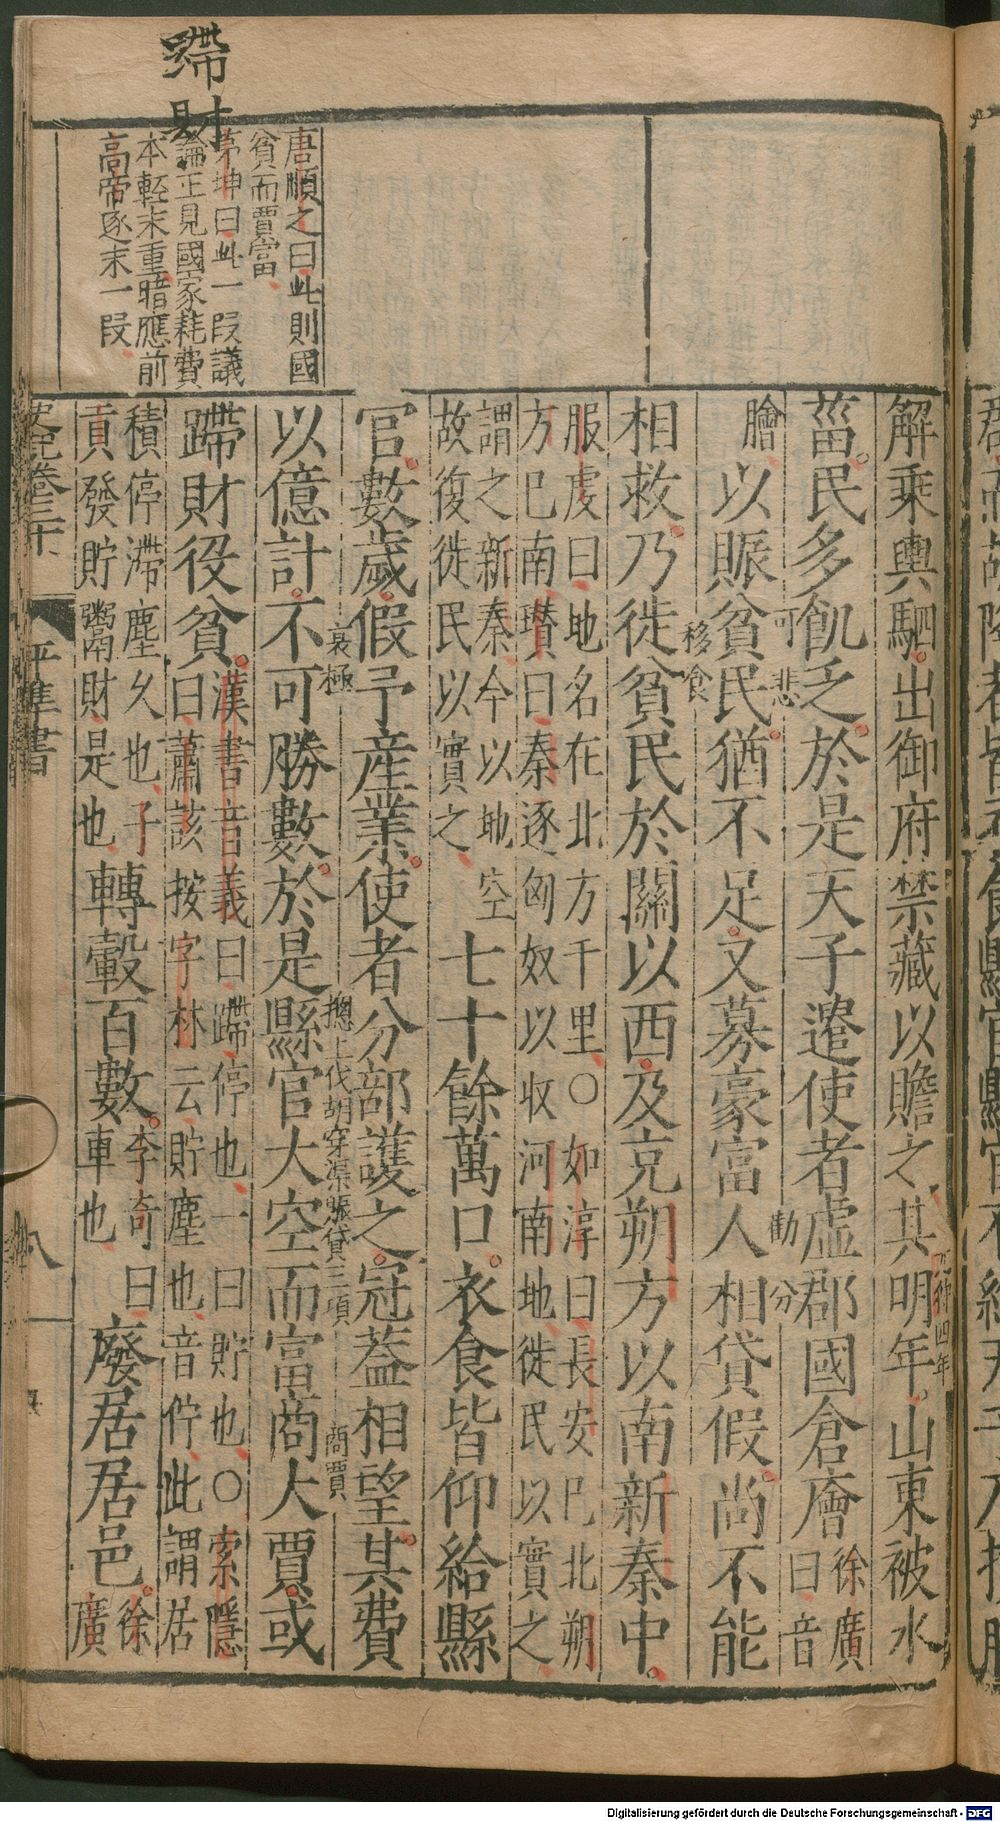 蹛財
唐順之曰此則國
貧而賈富
茅坤曰此一段議
論正見國家耗費
本輕末重暗應前
高帝逐末一段
解乘輿駟出御府禁藏以贍之其明年山東被水
元狩四年
菑民多飢乏於是天子遣使者虛郡國倉廥
徐廣
曰音
膾
以賑貧民猶不足又募豪富人相貸假尚不能
可悲
勸分
相救乃徙貧民於關以西及充朔方以南新秦中
移食
服虔曰地名在北方千里〇如淳曰長安巳北朔
方巳南瓚曰秦逐匈奴以收河南地徙民以實之
謂之新秦今以地空
故復徙民以實之
七十餘萬口衣食皆仰給縣
官數歲假予產業使者分部護之冠蓋相望其費
以億計不可勝數於是縣官大空而富商大賈或
衰極
摠上伐胡穿渠賑貸三項
商賈
蹛財役貧
漢書音義曰蹛停也一曰貯也〇索隱
曰蕭該按字林云貯塵也音佇此謂居
積停滯塵久也子
貢發貯鬻財是也
轉轂百數
李奇曰
車也
廢居居邑
徐
廣
史記卷三十
平準書
八
Digitalisierung gefördert durch die Deutsche Forschungsgemeinschaft - DFG